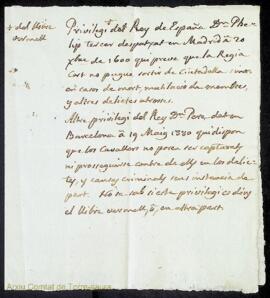 + del llibre
vermell
Privilegi del Rey de España Dn. Phe-
lip tercer despatxat en Madrid à 20
xbre de 1600 qui preve que la Regia
Cort no pugue sortir de Ciutadella, sino en
casos de mort, mutilacio de membres,
y altres delictes atroces.
Altre privilegi del Rey Dn. Pere dat en
Barcelona à 19 Maig 1380 qui dispon
que los Cavallers no poran ser capturats
ni proseguirse contra de ells en los delic-
tes, y causes criminals sens instancia de
part. No se sab si este privilegi es dins
el llibre vermell, ò, en altra part.
Arxiu Comtat de Torre-saura